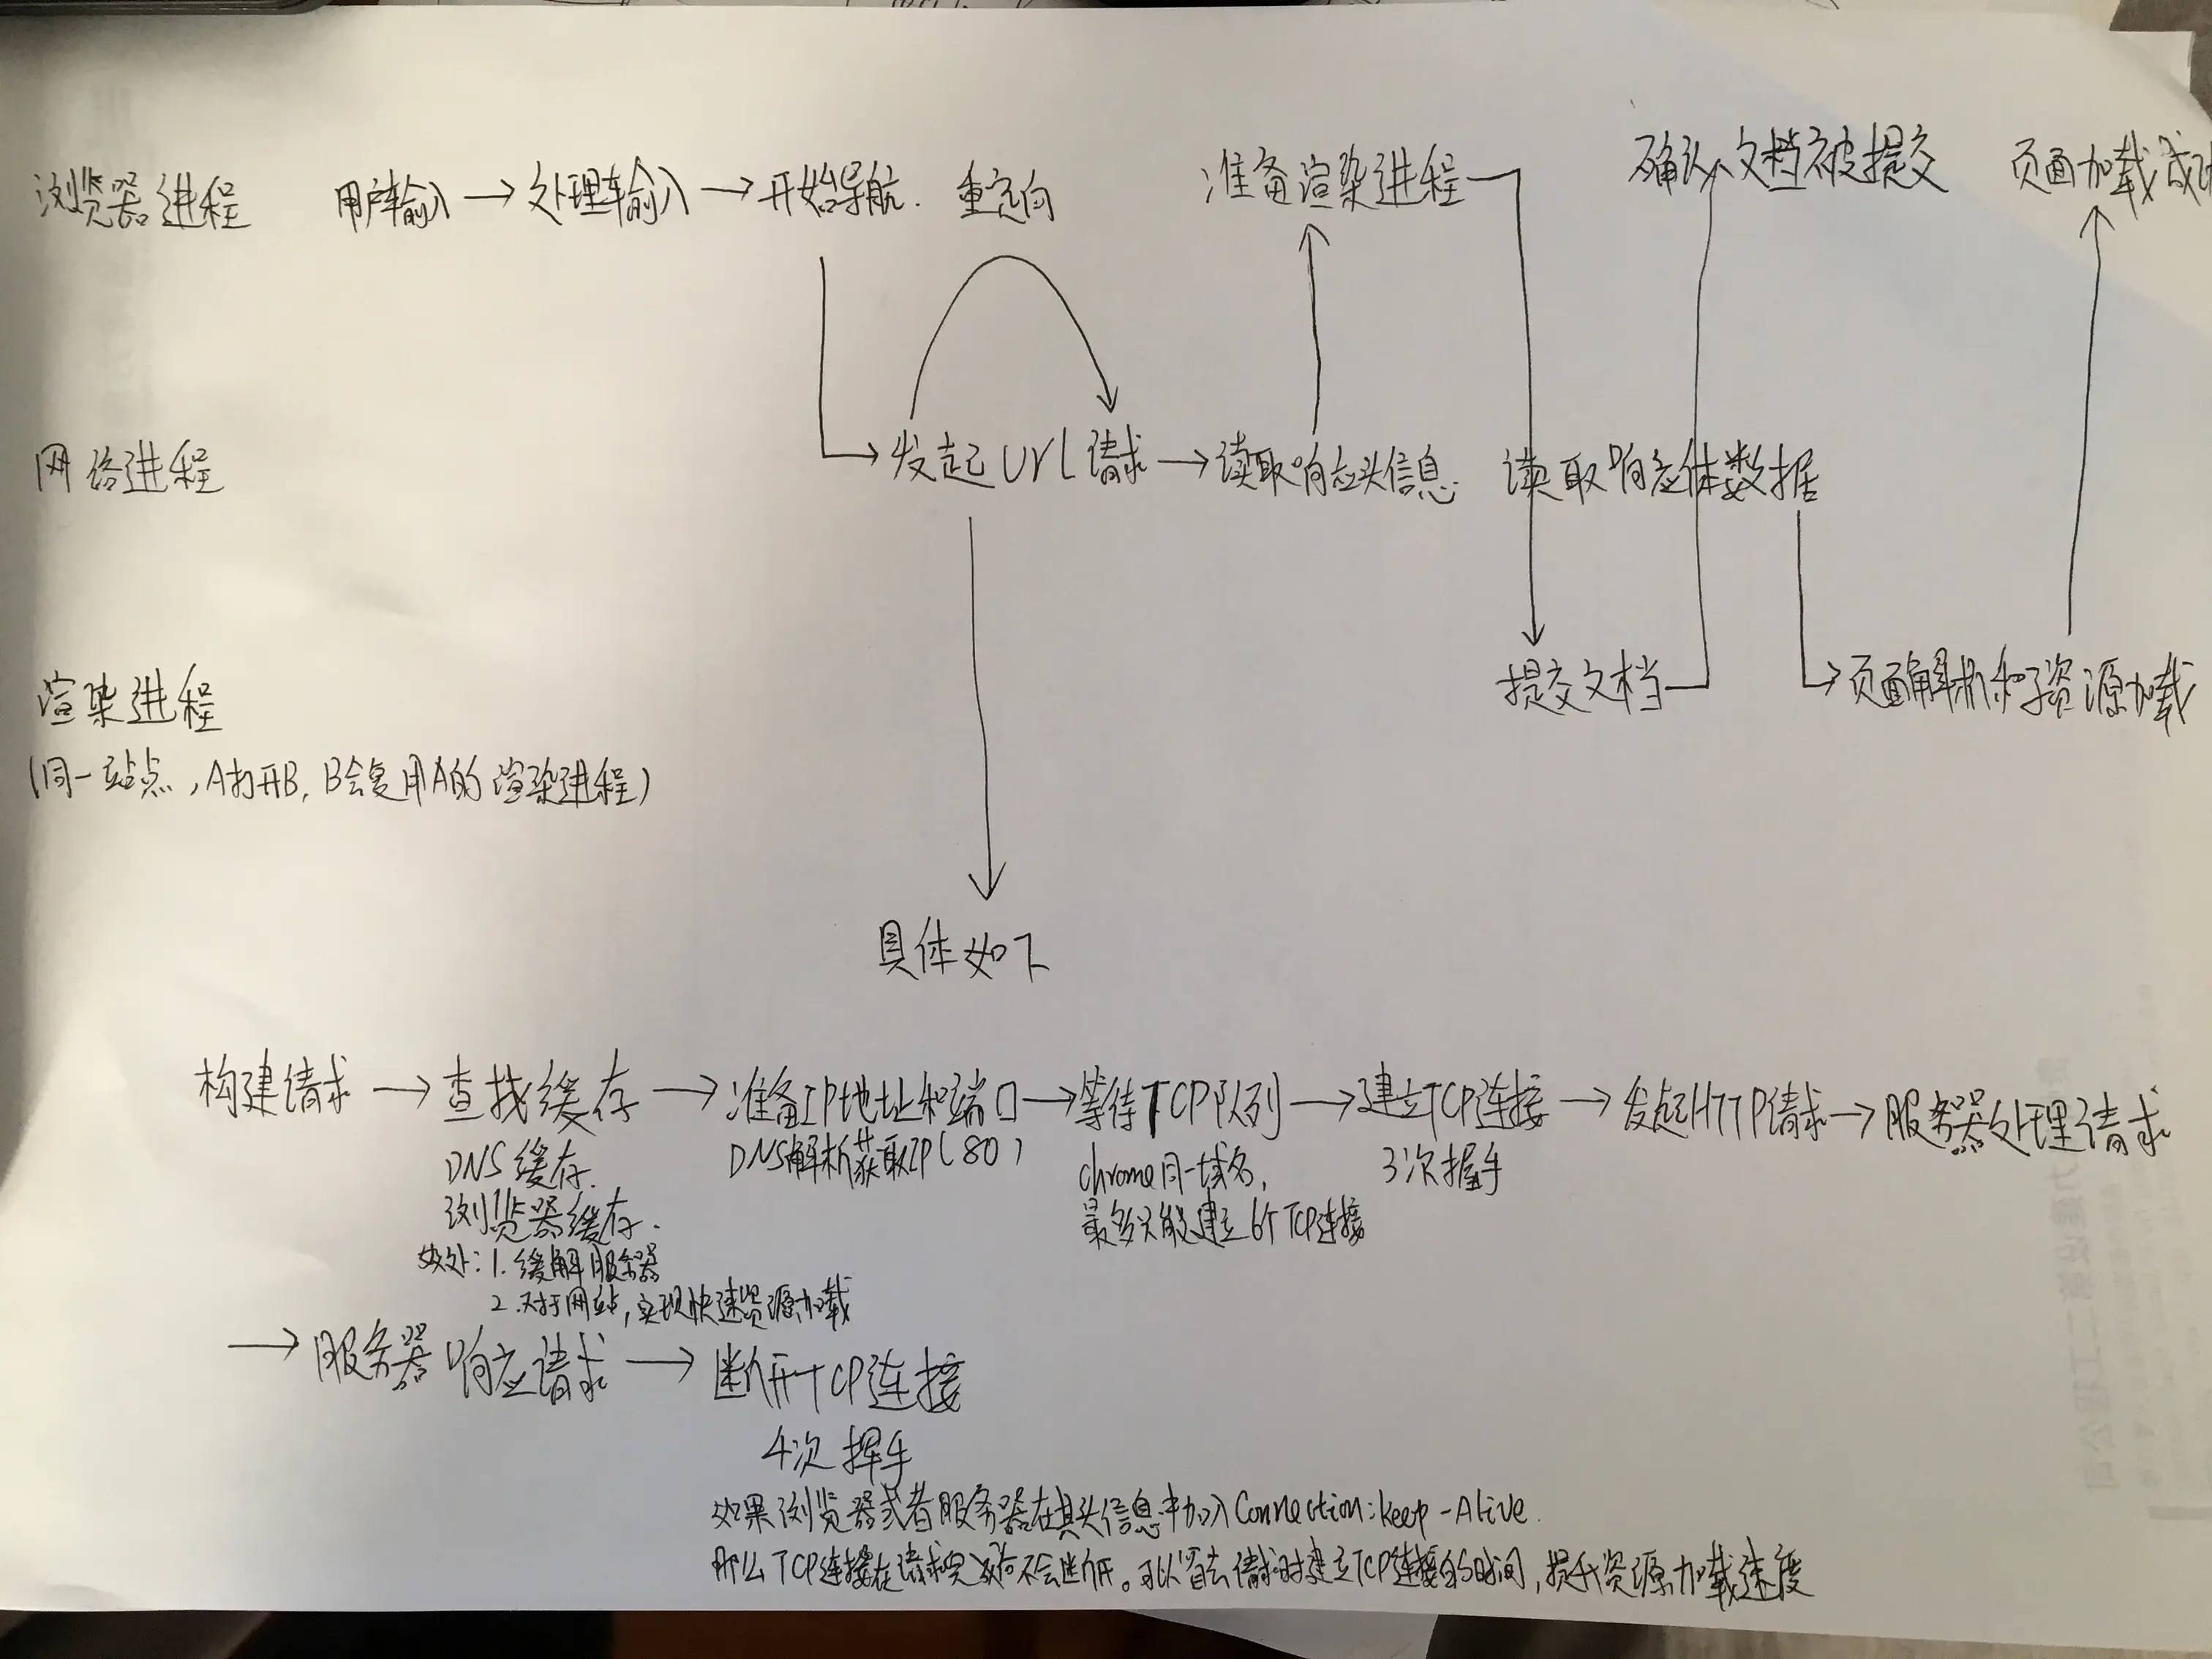 浏览器进程 用户输入 → 处理输入 → 开始导航. 重定向 准备渲染进程 确认文档被提交 页面加载成
网络进程 发起 url 请求 → 读取响应头信息. 读取响应体数据
渲染进程 提交文档 页面解析和资源加载
(同一站点,A打开B,B会复用A的渲染进程)
具体如下
构建请求 → 查找缓存 → 准备IP地址和端口 → 等待TCP队列 → 建立TCP连接 → 发起HTTP请求 → 服务器处理请求
DNS缓存. DNS解析获取IP(80) chrome同一域名, 3次握手
浏览器缓存. 最多只能建立6个TCP连接
好处: 1. 缓解服务器
2. 对于网站,实现快速资源加载
→ 服务器响应请求 → 断开TCP连接
4次挥手
如果浏览器或者服务器在其头信息中加入Connection:keep-Alive.
那么TCP连接在请求完成后不会断开。可以省去请求时建立TCP连接的时间,提升资源加载速度